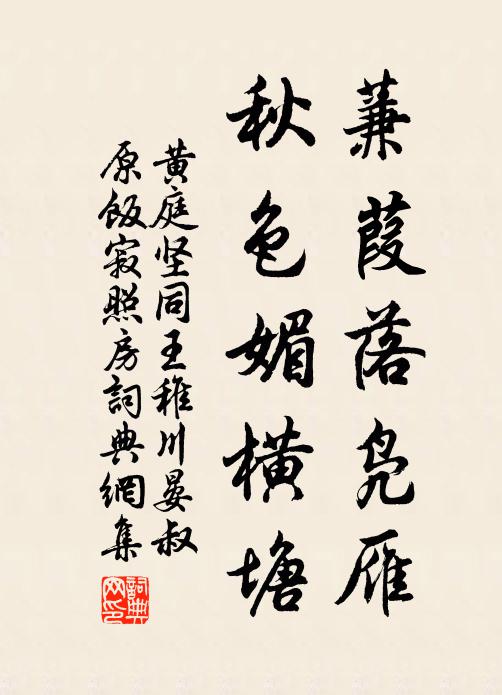 蒹葭落凫雁
秋色媚横塘
黄庭坚同王稚川晏叔
原飯寂照房詞典網集
詞典網印